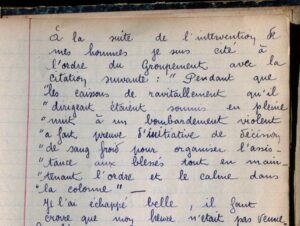 À la suite de l'intervention de
mes hommes je suis cité à
l'ordre du Groupement avec la
citation suivante : " Pendant que
"les caissons de ravitaillement qu'il
"dirigeait étaient soumis en pleine
"nuit à un bombardement violent
"a fait preuve d'initiative de décision
"de sang froid pour organiser l'assis-
"tance aux blessés tout en main-
"tenant l'ordre et le calme dans
"la colonne " —
Je l'ai échappé belle, il faut
croire que mon heure n'était pas venue.